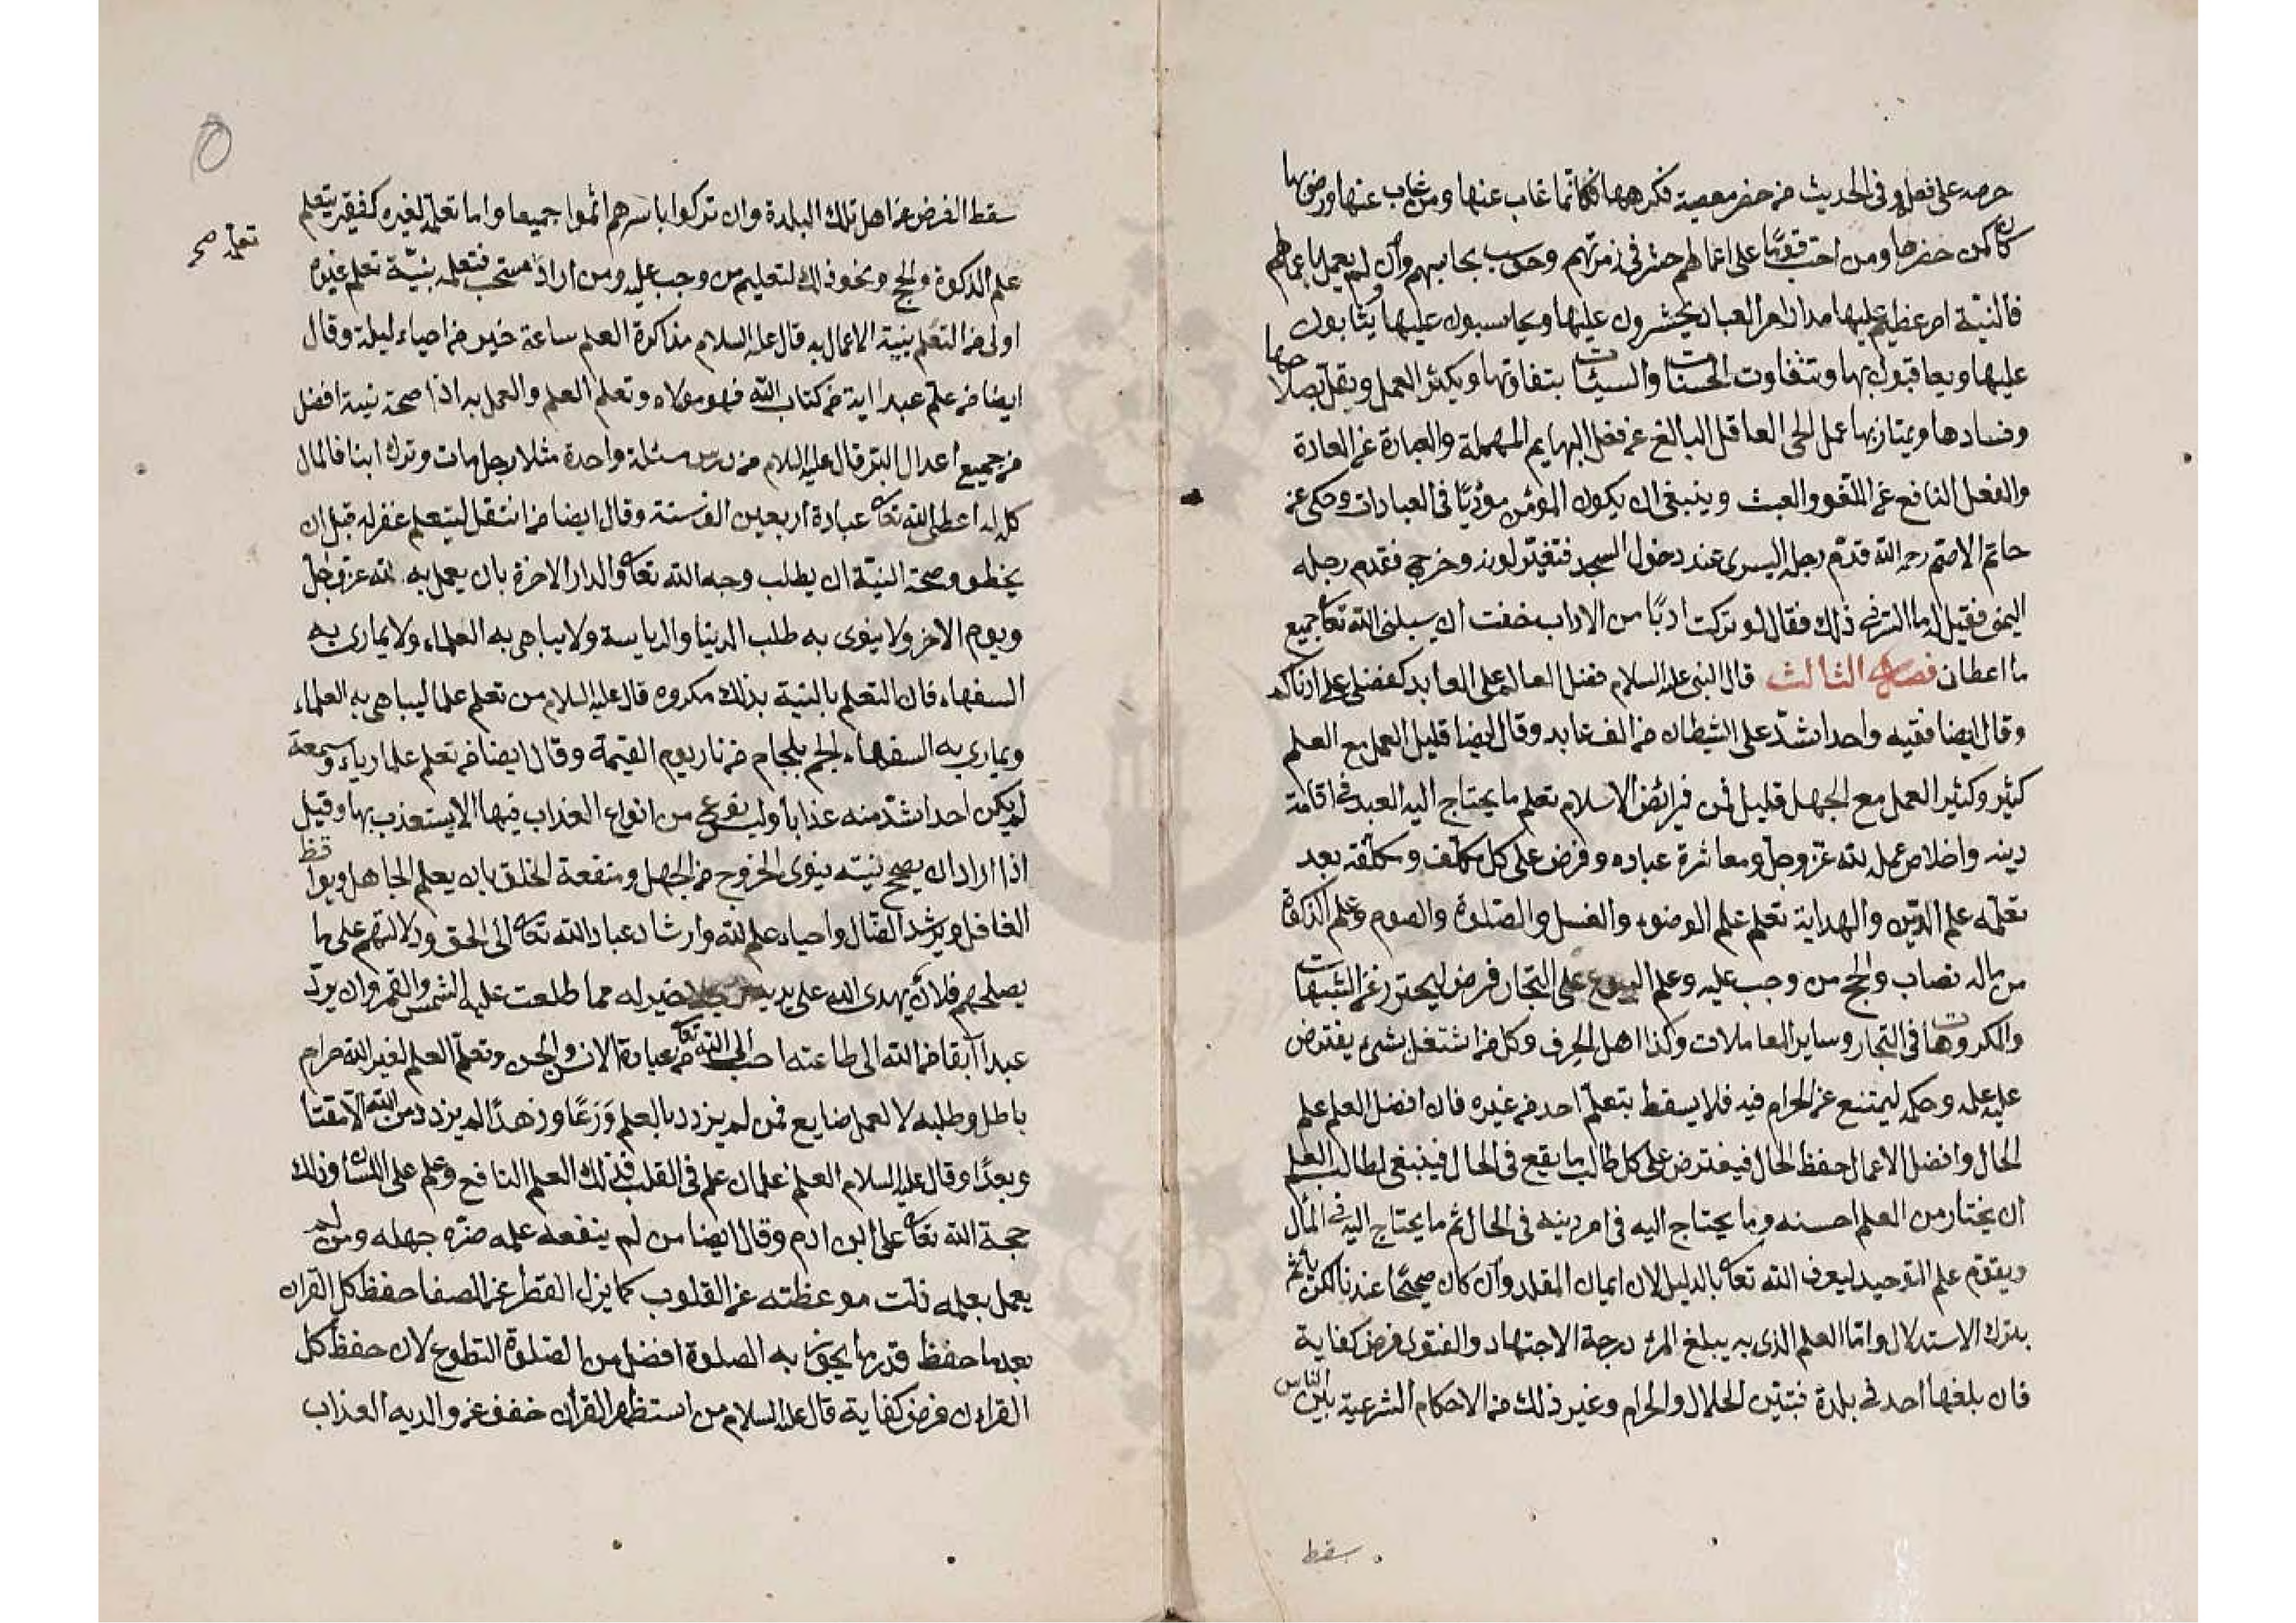 حرصه على فعله وفى الحديث من حضر معصية فكرهها فكانما غاب عنها ومن غاب عنها ورضيها
كان كمن حضرها ومن احب قومًا على اعمالهم حشر فى زمرتهم وحوسب بحسابهم وان لم يعمل باعمالهم
فالنية امر عظيم عليها مدار امر العباد يحشرون عليها ويحاسبون عليها ويثابون
عليها ويعاقبون بها وتتفاوت الحسنات والسيئات بتفاوتها ويكثر العمل ويقل بصلاحها
وفسادها ويمتاز بها عمل الحى العاقل البالغ عن فعل البهايم المهملة والعبادة عن العادة
والفعل النافع عن اللغو والعبث وينبغى ان يكون المؤمن مؤدبًا فى العبادات وحكى عن
حاتم الاصم رحمه الله قدم رجله اليسرى عند دخول المسجد فتغير لونه وخرج فقدم رجله
اليمنى فقيل له ما السر فى ذلك فقال لو تركت ادبًا من الاداب خفت ان يسلبنى الله تعالى جميع
ما اعطانى فصل الثالث قال النبى عليه السلام فضل العالم على العابد كفضلى على ادناكم
وقال ايضا فقيه واحد اشد على الشيطان من الف عابد وقال ايضا قليل العمل مع العلم
كثير وكثير العمل مع الجهل قليل فمن فرائض الاسلام تعلم ما يحتاج اليه العبد فى اقامة
دينه واخلاص عمله لله عز وجل ومعاشرة عباده وفرض على كل مكلف ومكلفة بعد
تعلمه علم الدين والهداية تعلم علم الوضوء والغسل والصلوة والصوم وعلم الزكوة
من ماله نصاب والحج من وجب عليه وعلم البيوع على التجار فرض ليحترز عن الشبهات
والمكروهات فى التجار وساير المعاملات وكذا اهل الحرف وكل من اشتغل بشىء يفترض
عليه علمه وحكمه ليمتنع عن الحرام فيه فلا يسقط بتعلم احد من غيره فان افضل العلم علم
الحال وافضل الاعمال حفظ الحال فيفترض على كل طالب ما يقع فى الحال فينبغى لطالب العلم
ان يختار من العلم احسنه وما يحتاج اليه فى امر دينه فى الحال ثم ما يحتاج اليه فى المأل
ويقدم علم التوحيد ليعرف الله تعالى بالدليل لان ايمان المقلد وان كان صحيحًا عندنا لكن يأثم
بترك الاستدلال واما العلم الذى به يبلغ المرء درجة الاجتهاد والفتوى فرض كفاية
فان بلغها احد فى بلدة فتبين الحلال والحرام وغير ذلك من الاحكام الشرعية بين الناس
سقط
سقط الفرض عن اهل تلك البلدة وان تركوا باسرهم اثموا جميعا واما تعلمه لغيره كفقير يتعلم
علم الزكوة والحج ونحو ذلك لتعليم من وجب عليه ومن اراد مستحب فتعلمه بنية تعلم غيره
تعلمه صح
اولى من التعلم بنية الاعمال به قال عليه السلام مذاكرة العلم ساعة خير من احياء ليلة وقال
ايضا من علم عبدا اية من كتاب الله فهو مولاه وتعلم العلم والعمل به اذا صحة نية افضل
من جميع اعمال البر قال عليه السلام من درس مسئلة واحدة مثلا رجل مات وترك ابنا فالمال
كله له اعطى الله تعالى عبادة اربعين الف سنة وقال ايضا من انتقل ليتعلم غفر له قبل ان
يخطو وصحة النية ان يطلب وجه الله تعالى والدار الاخرة بان يعمل به لله عز وجل
ويوم الاخر ولا ينوى به طلب الدنيا والرياسة ولا يباهى به العلماء ولا يمارى به
السفهاء فان التعلم بالنية بذلك مكروه قال عليه السلام من تعلم علما ليباهى به العلماء
ويمارى به السفهاء الجم بلجام من نار يوم القيمة وقال ايضا من تعلم علما رياء وسمعة
لم يكن احد اشد منه عذابا وليس نوع من انواع العذاب فيها الا يستعذب بها وقيل
اذا اراد ان يصح نيته ينوى الخروج من الجهل ومنفعة الخلق بان يعلم الجاهل ويوقظ
الغافل ويرشد الضال واحياء علم لله وارشاد عباد الله تعالى الى الحق ودلالتهم على ما
يصلحهم فلان يهدى الله على يديه خير له مما طلعت عليه الشمس والقمر وان يرد
عبدا آبقا من الله الى طاعته احب الى الله تعالى من عبادة الانس والجن وتعلم العلم لغير الله حرام
باطل وطلبه لا لعمل ضايع فمن لم يزدد بالعلم ورعًا وزهدًا لم يزدد من الله الا مقتا
وبعدًا وقال عليه السلام العلم علمان علم فى القلب فذلك العلم النافع وعلم على اللسان وذلك
حجة الله تعالى على ابن ادم وقال ايضا من لم ينفعه علمه ضره جهله ومن لم
يعمل بعلمه زلت موعظته عن القلوب كما يزل القطر عن الصفا حفظ كل القران
بعد ما حفظ قدر ما يجوز به الصلوة افضل من الصلوة التطوع لان حفظ كل
القران فرض كفاية قال عليه السلام من استظهر القران خفف عن والديه العذاب